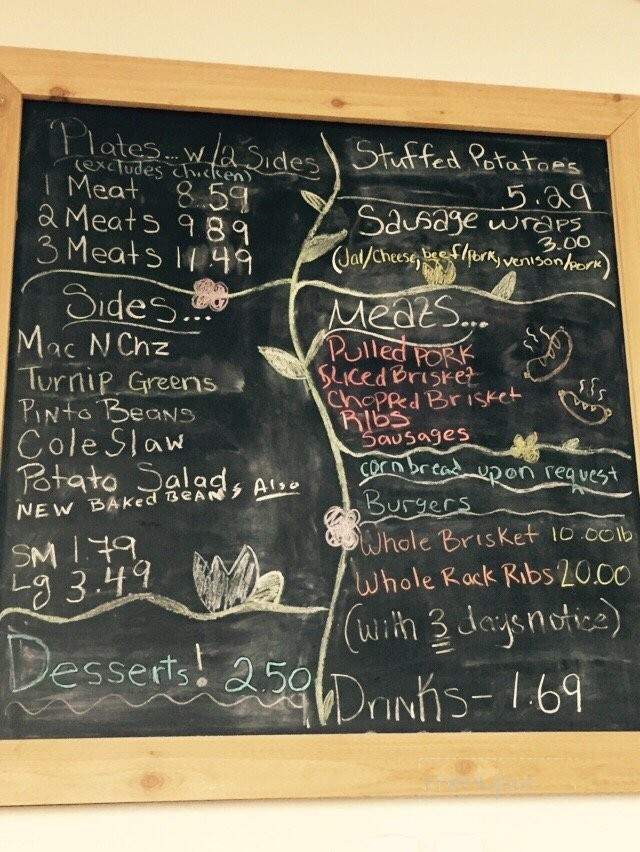 Plates... w/2 Sides
(excludes chicken)
1 Meat 8.59
2 Meats 9.89
3 Meats 11.49
Sides...
Mac N Chz
Turnip Greens
Pinto Beans
Cole Slaw
Potato Salad
NEW BAKED BEANS Also
SM 1.79
Lg 3.49
Desserts! 2.50
Stuffed Potatoes
5.29
Sausage wraps
3.00
(Jal/Cheese, beef/pork, venison/pork)
Meats...
Pulled Pork
Sliced Brisket
Chopped Brisket
Ribs
Sausages
cornbread upon request
Burgers
Whole Brisket 10.00lb
Whole Rack Ribs 20.00
(with 3 days notice)
Drinks - 1.69